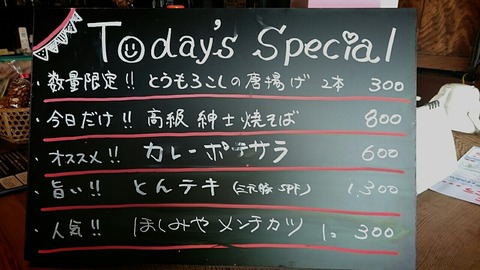 Today's Special
・数量限定!! とうもろこしの唐揚げ 2本 300
・今日だけ!! 高級 紳士焼そば 800
・オススメ!! カレーポテサラ 600
・旨い!! とんテキ (三元豚 SPF) 1,300
・人気!! ほしみや メンチカツ 1コ 300